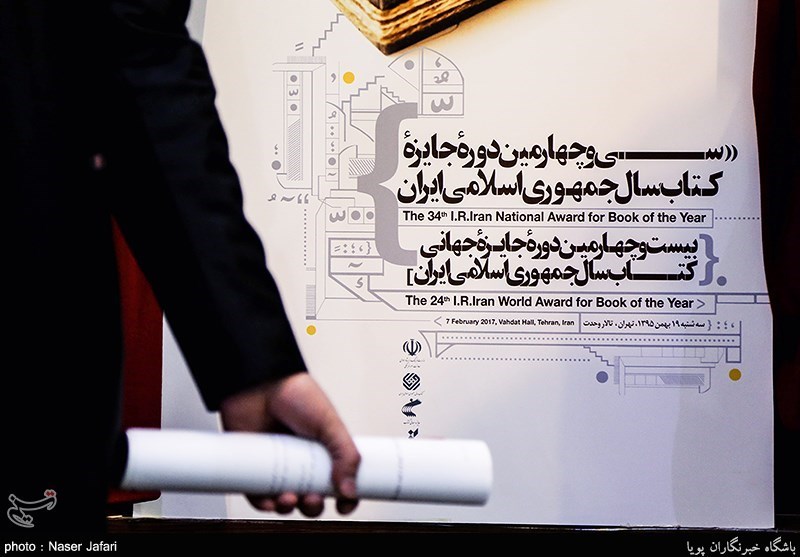 «ســی‌وچهارمین دورهٔ جایزهٔ
کتاب سال جمهوری اسلامی ایران
The 34th I.R.Iran National Award for Book of the Year
بیست‌وچهارمین دورهٔ جایزهٔ جهانی
کتـــاب سال جمهوری اسلامی ایران]
The 24th I.R.Iran World Award for Book of the Year >
< 7 February 2017, Vahdat Hall, Tehran, Iran
سه‌شنبه ۱۹ بهمن ۱۳۹۵، تهران، تالار وحدت
تسنیم
photo : Naser Jafari
باشگاه خبرنگاران پویا